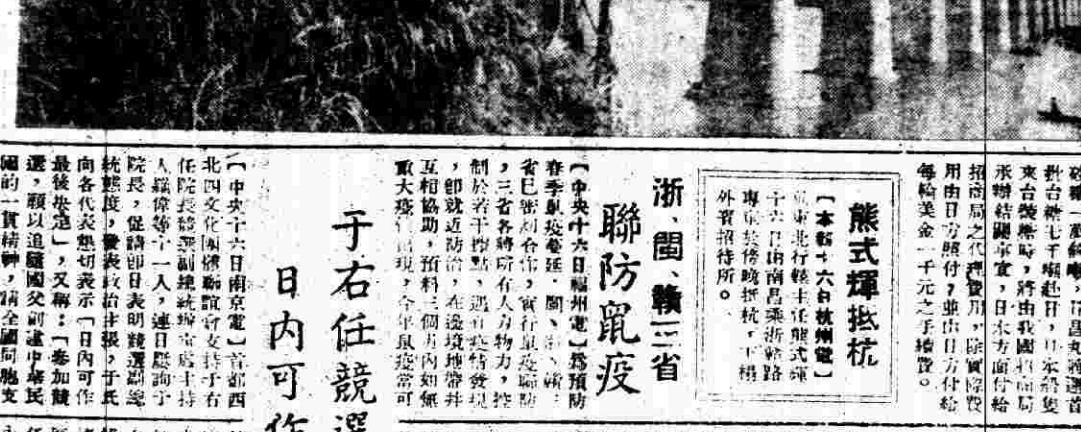 來台裝糖時,將由我國招商局
承辦結關事宜,日本方面付給
招商局之代理費用,除實際費
用由日方照付,並由日方付給
每輪美金一千元之手續費。
熊式輝抵杭
【本報十六日杭州電】
東北行轅主任熊式輝
十六日由南昌乘浙贛路
專車於傍晚抵杭,下榻
外賓招待所。
浙、閩、贛三省
聯防鼠疫
【中央十六日福州電】爲預防
春季鼠疫蔓延,閩、浙、贛三
省已密切合作,實行鼠疫聯防
,三省各將所有人力物力,控
制於若干據點,遇有疫情發現
,卽就近防治,在邊境地帶幷
互相協助,預料三個月內如無
重大疫情出現,今年鼠疫當可
于右任競選
日內可作
【中央十六日南京電】首都西
北四文化團體聯誼會支持于右
任院長競選副總統
人 等十一人,連日 詢于
院長,促請卽日表明競選副總
統態度,發表政治主張,于氏
向各代表懇切表示「日內可作
最後決定」,又稱:「參加競
選,願以追隨國父創建中華民
國的一貫精神,請全國同胞支